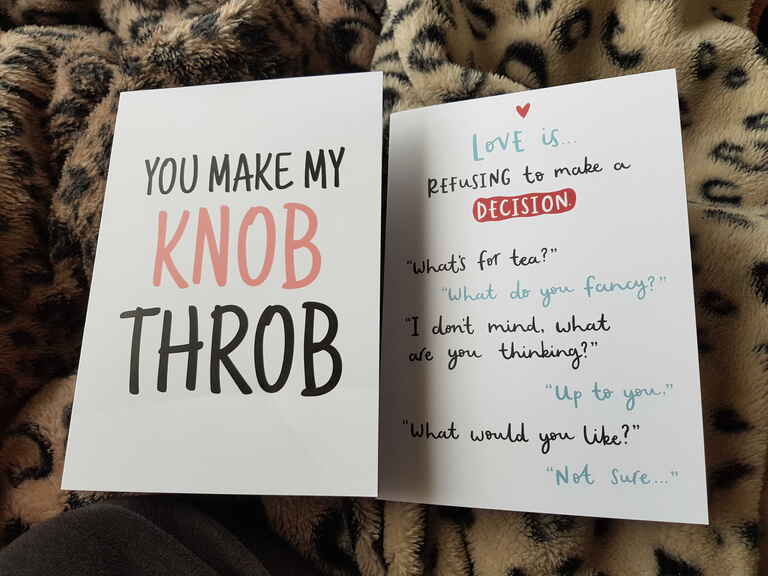 YOU MAKE MY
KNOB
THROB
LOVE is...
REFUSING to make a
DECISION.
"What's for tea?"
"What do you fancy?"
"I don't mind, what
are you thinking?"
"Up to you."
"What would you like?"
"Not sure..."